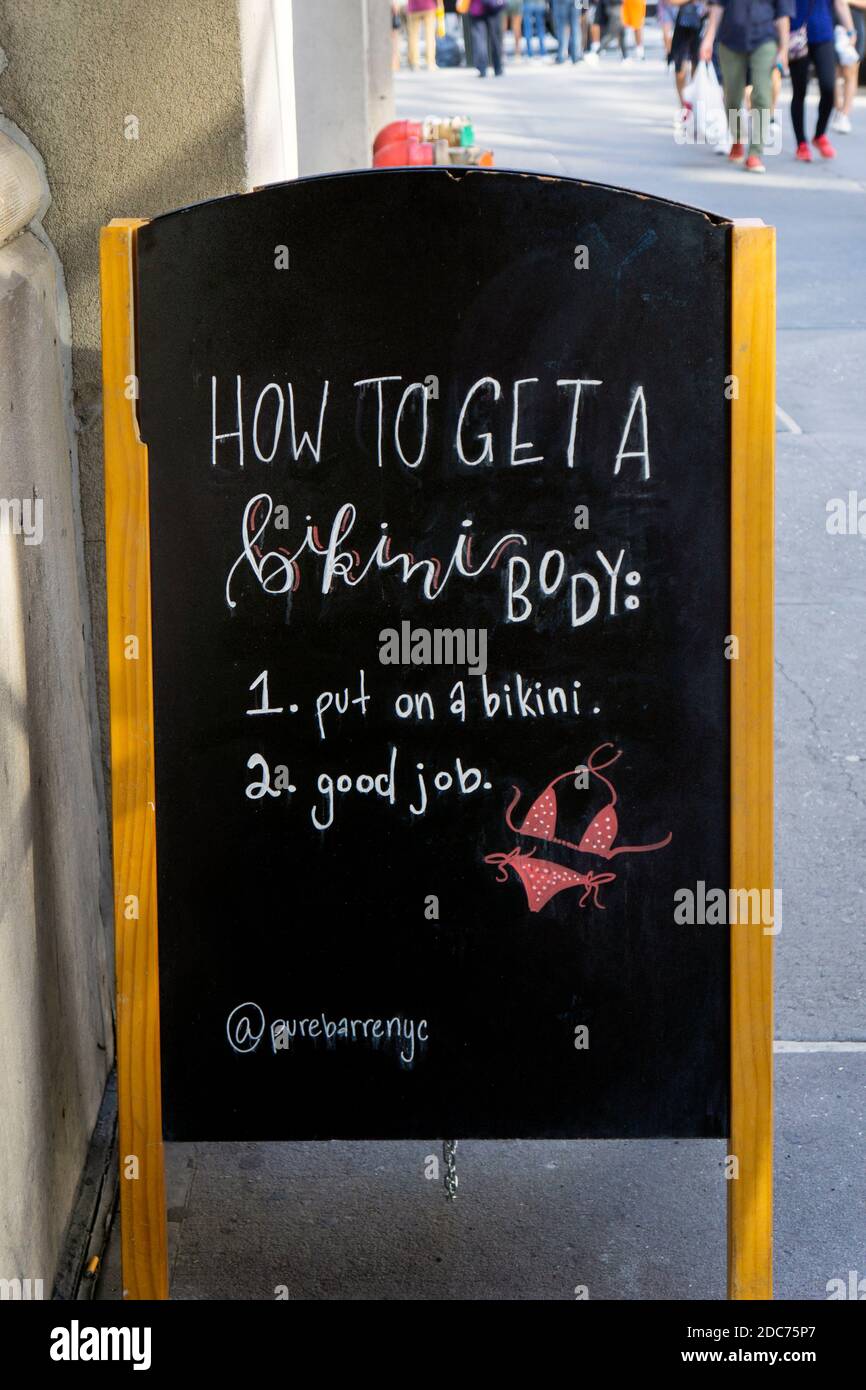 HOW TO GET A
bikini BODY:
1. put on a bikini.
2. good job.
@purebarrenyc
alamy
Image ID: 2DC75P7
www.alamy.com